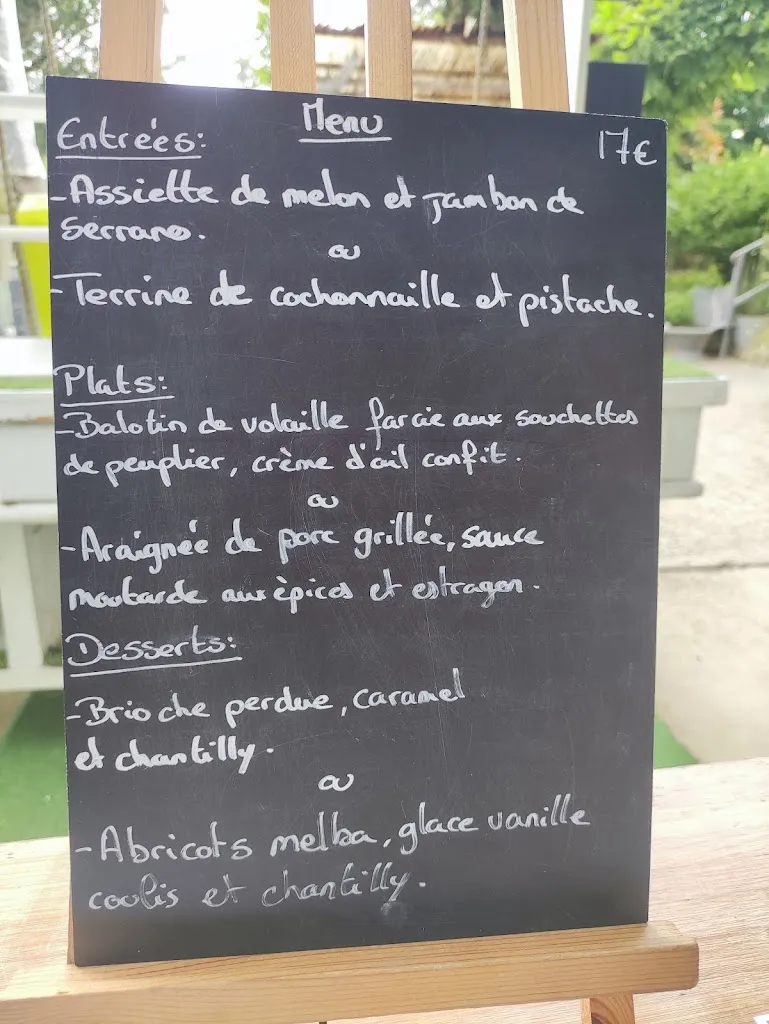 Menu
17€
Entrées:
-Assiette de melon et Jambon de
Serrano.
ou
-Terrine de cochonnaille et pistache.
Plats:
-Balotin de volaille farcie aux souchettes
de peuplier, crème d'ail confit.
ou
-Araignée de porc grillée, sauce
moutarde aux èpices et estragon.
Desserts:
-Brioche perdue, caramel
et chantilly.
ou
-Abricots melba, glace vanille
coulis et chantilly.